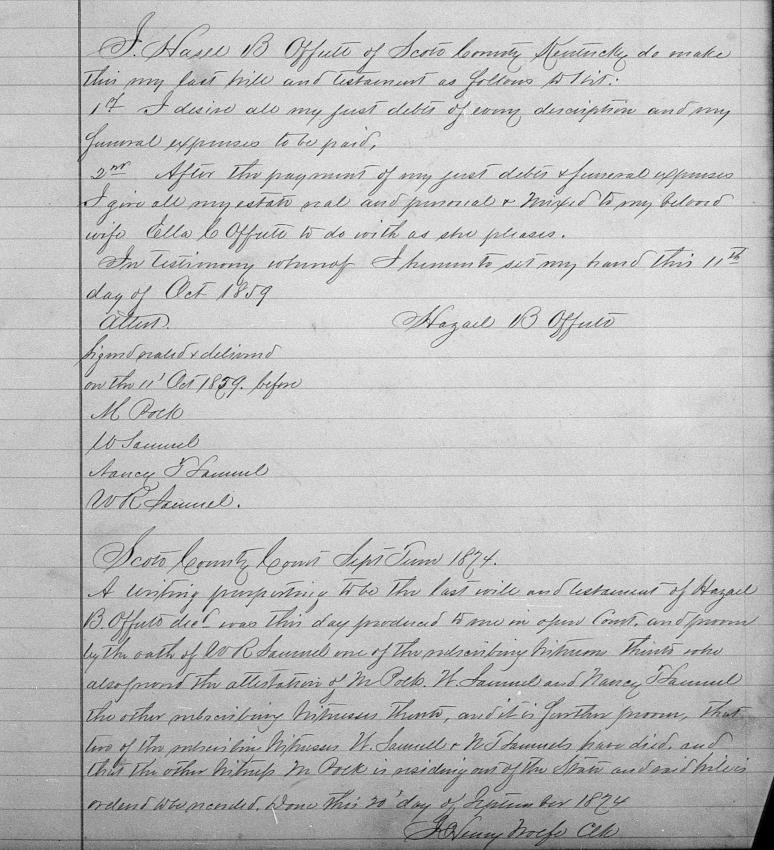 I. Hasel B Offutt of Scott County Kentucky do make
this my last will and testament as follows to wit:
1st I desire all my just debts of every discription and my
funeral expenses to be paid,
2nd After the payment of my just debts & funeral expenses
I give all my estate real and personal & mixed to my beloved
wife Ella C Offutt to do with as she pleases.
In testimony whereof I hereunto set my hand this 11th
day of Oct 1859
Attest. Hazael B Offutt
Signed sealed & delivered
on the 11' Oct 1859. before
M Pock
W Samuel
Nancy T Samuel
W R Samuel.
Scott County Court Sept Term 1874.
A writing purporting to be the last will and testament of Hazael
B. Offutt decd was this day produced to me in open Court. and proven
by the oath of W R Samuel one of the subscribing witnesses thereto who
also proved the attestation of M Pock. W. Samuel and Nancy T Samuel
the other subscribing witnesses thereto, and it is further proven, that
two of the subscribing witnesses W. Samuel & N T Samuels have died, and
that the other witness M Pock is residing out of the State and said will is
ordered to be recorded. Done this 20' day of September 1874
J Henry Wolfe Clk